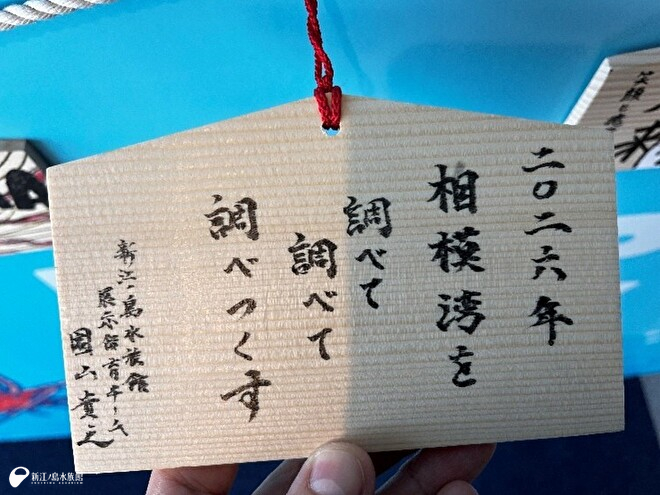 二〇二六年
相模湾を
調べて
調べて
調べつくす
新江ノ島水族館
展示飼育チーム
新江ノ島水族館